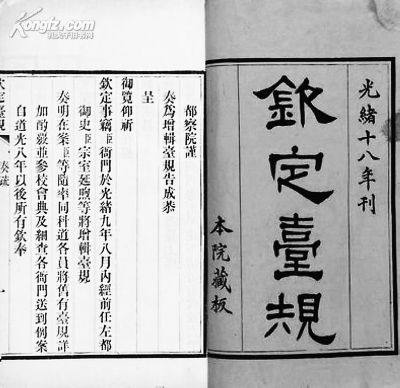 光緒十八年刊
欽定臺規
本院藏板
都察院謹
奏爲增輯臺規告成恭
呈
御覽仰祈
欽定事竊臣衙門於光緒九年八月內經前任左都
御史臣宗室延煦等將增輯臺規
奏明在案臣等隨率同科道各員將舊有臺規詳
加酌覈並參校會典及細查各衙門送到例案
自道光八年以後所有欽奉
欽定臺規
奏疏
一